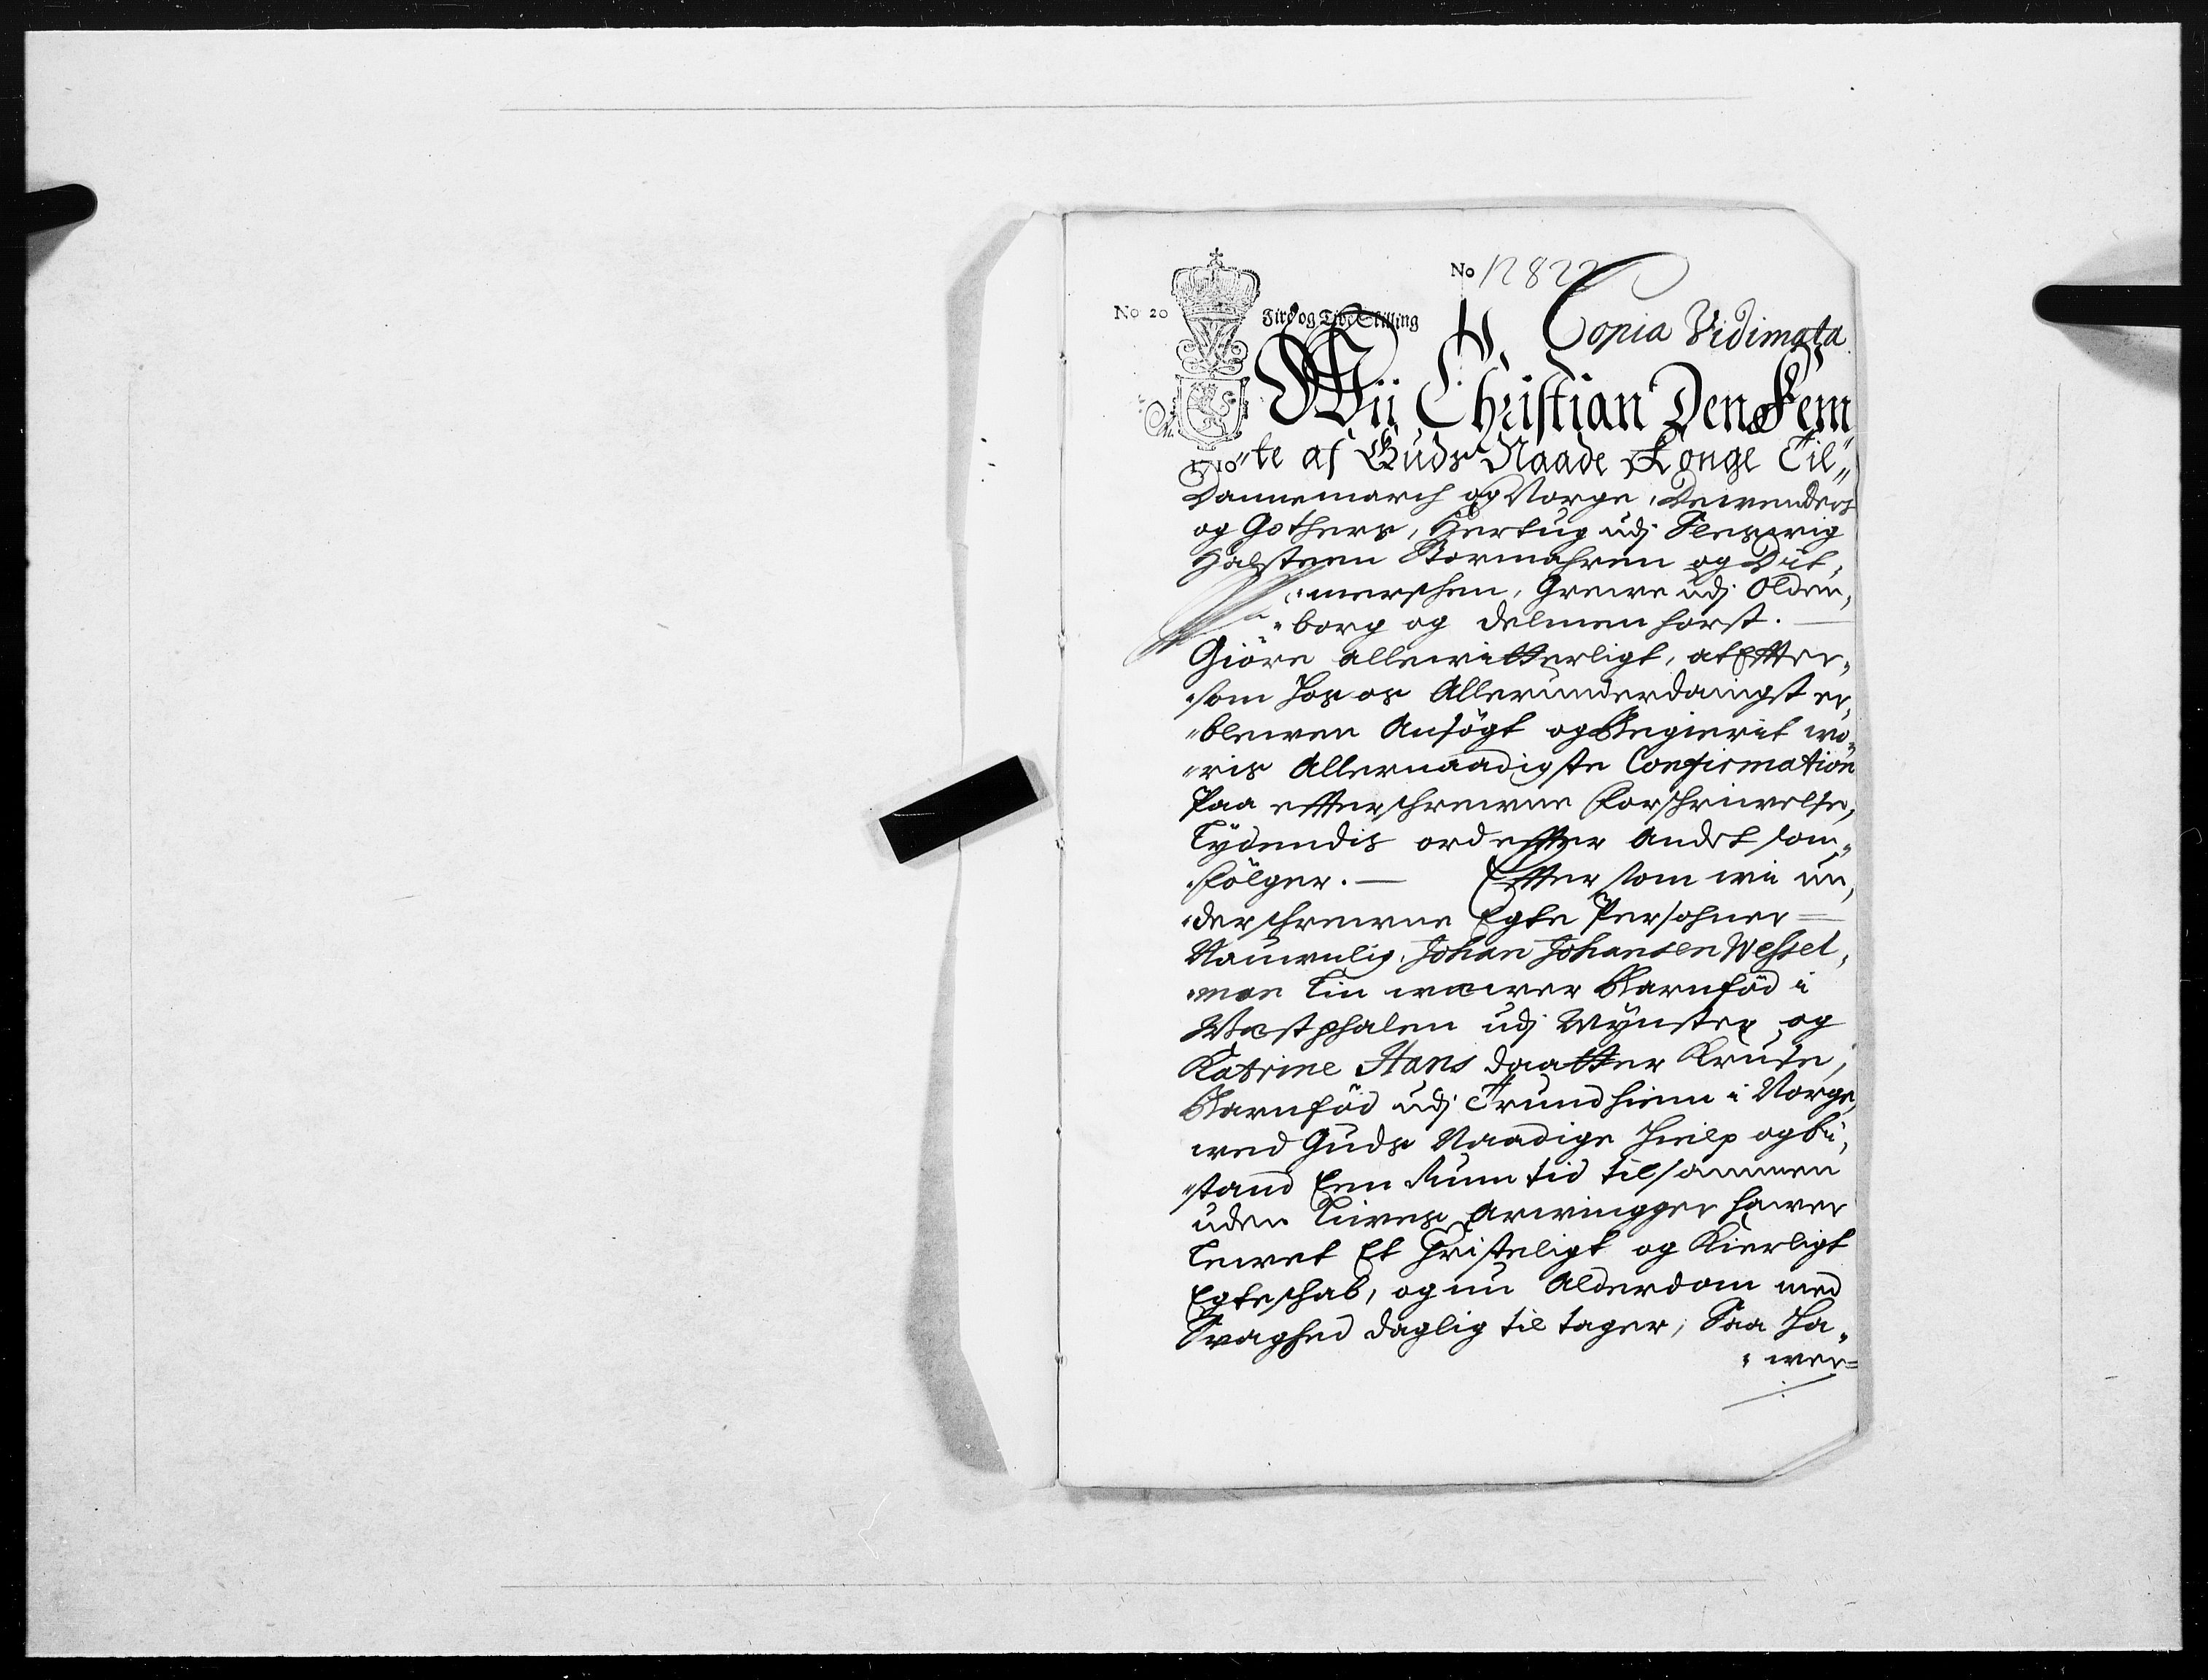 No 12822
No 20
Fire og Tive Skilling
4
Copia Vidimata
Wii Christian Den Fem
1710
"te af Guds Naade Konge Til"
Dannemarch og Norge, De Wenders
og Gothers, Hertug udj Sleswig
Holsteen Stormahren og Dit„
„merschen, Grewe udj Olden„
„borg og Delmenhorst.
Giöre allewitterligt, at Effter„
„som hos os Allerunderdanigst er
„blewen Ansögt og Begierit wo„
„ris Allernaadigste Confirmation
Paa effterschrewne Forschriwelse,
Lÿdendis ord effter Andet som„
„fölger.— Effter som wii un„
„derschrewne Egte Persohner
Naunlig, Johan Johansen Wessel„
„man Lin wæwer Barnföd i
Westphalen udj Mÿnster og
Katrine Hans daatter Kruse,
Barnföd udj Trundhiem i Norge,
wed Guds Naadige Hielp og bi„
„stand Een Rum tid tilsammen
uden Liwes Arwingger hawer
Lewet Et Christeligt og Kierligt
Egteschab, og nu Alderdom med
Swaghed daglig til tager, Saa Ha„
„wer